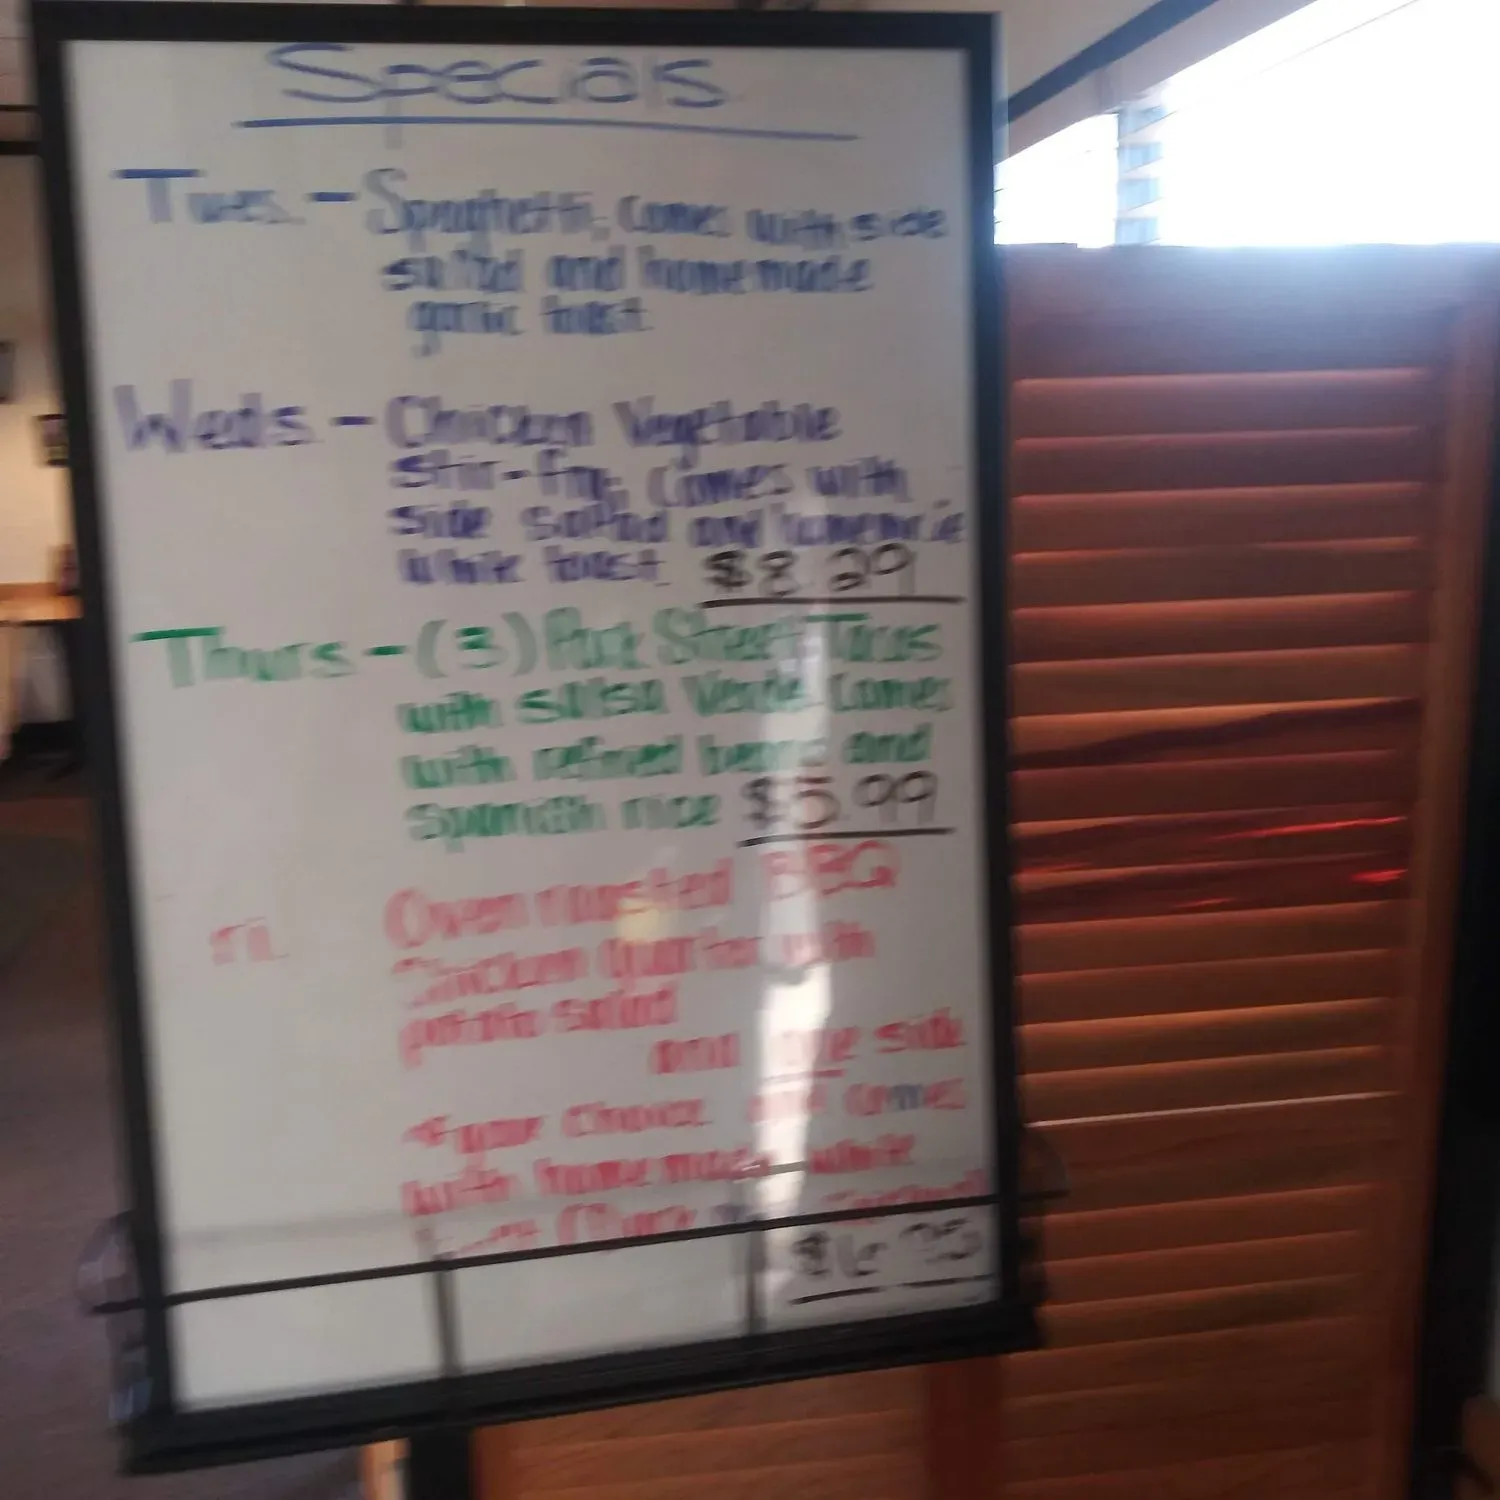 Specials
Tues. - Spaghetti, comes with side
salad and homemade
garlic toast
Weds. - Chicken Vegetable
stir-fry, comes with
side salad and homemade
white toast $8.29
Thurs - (3) Pork Street Tacos
with salsa Verde Comes
with refried beans and
Spanish rice $5.99
Oven roasted BBQ
Chicken Quarter with
potato salad
and one side
of your choice and comes
with homemade white